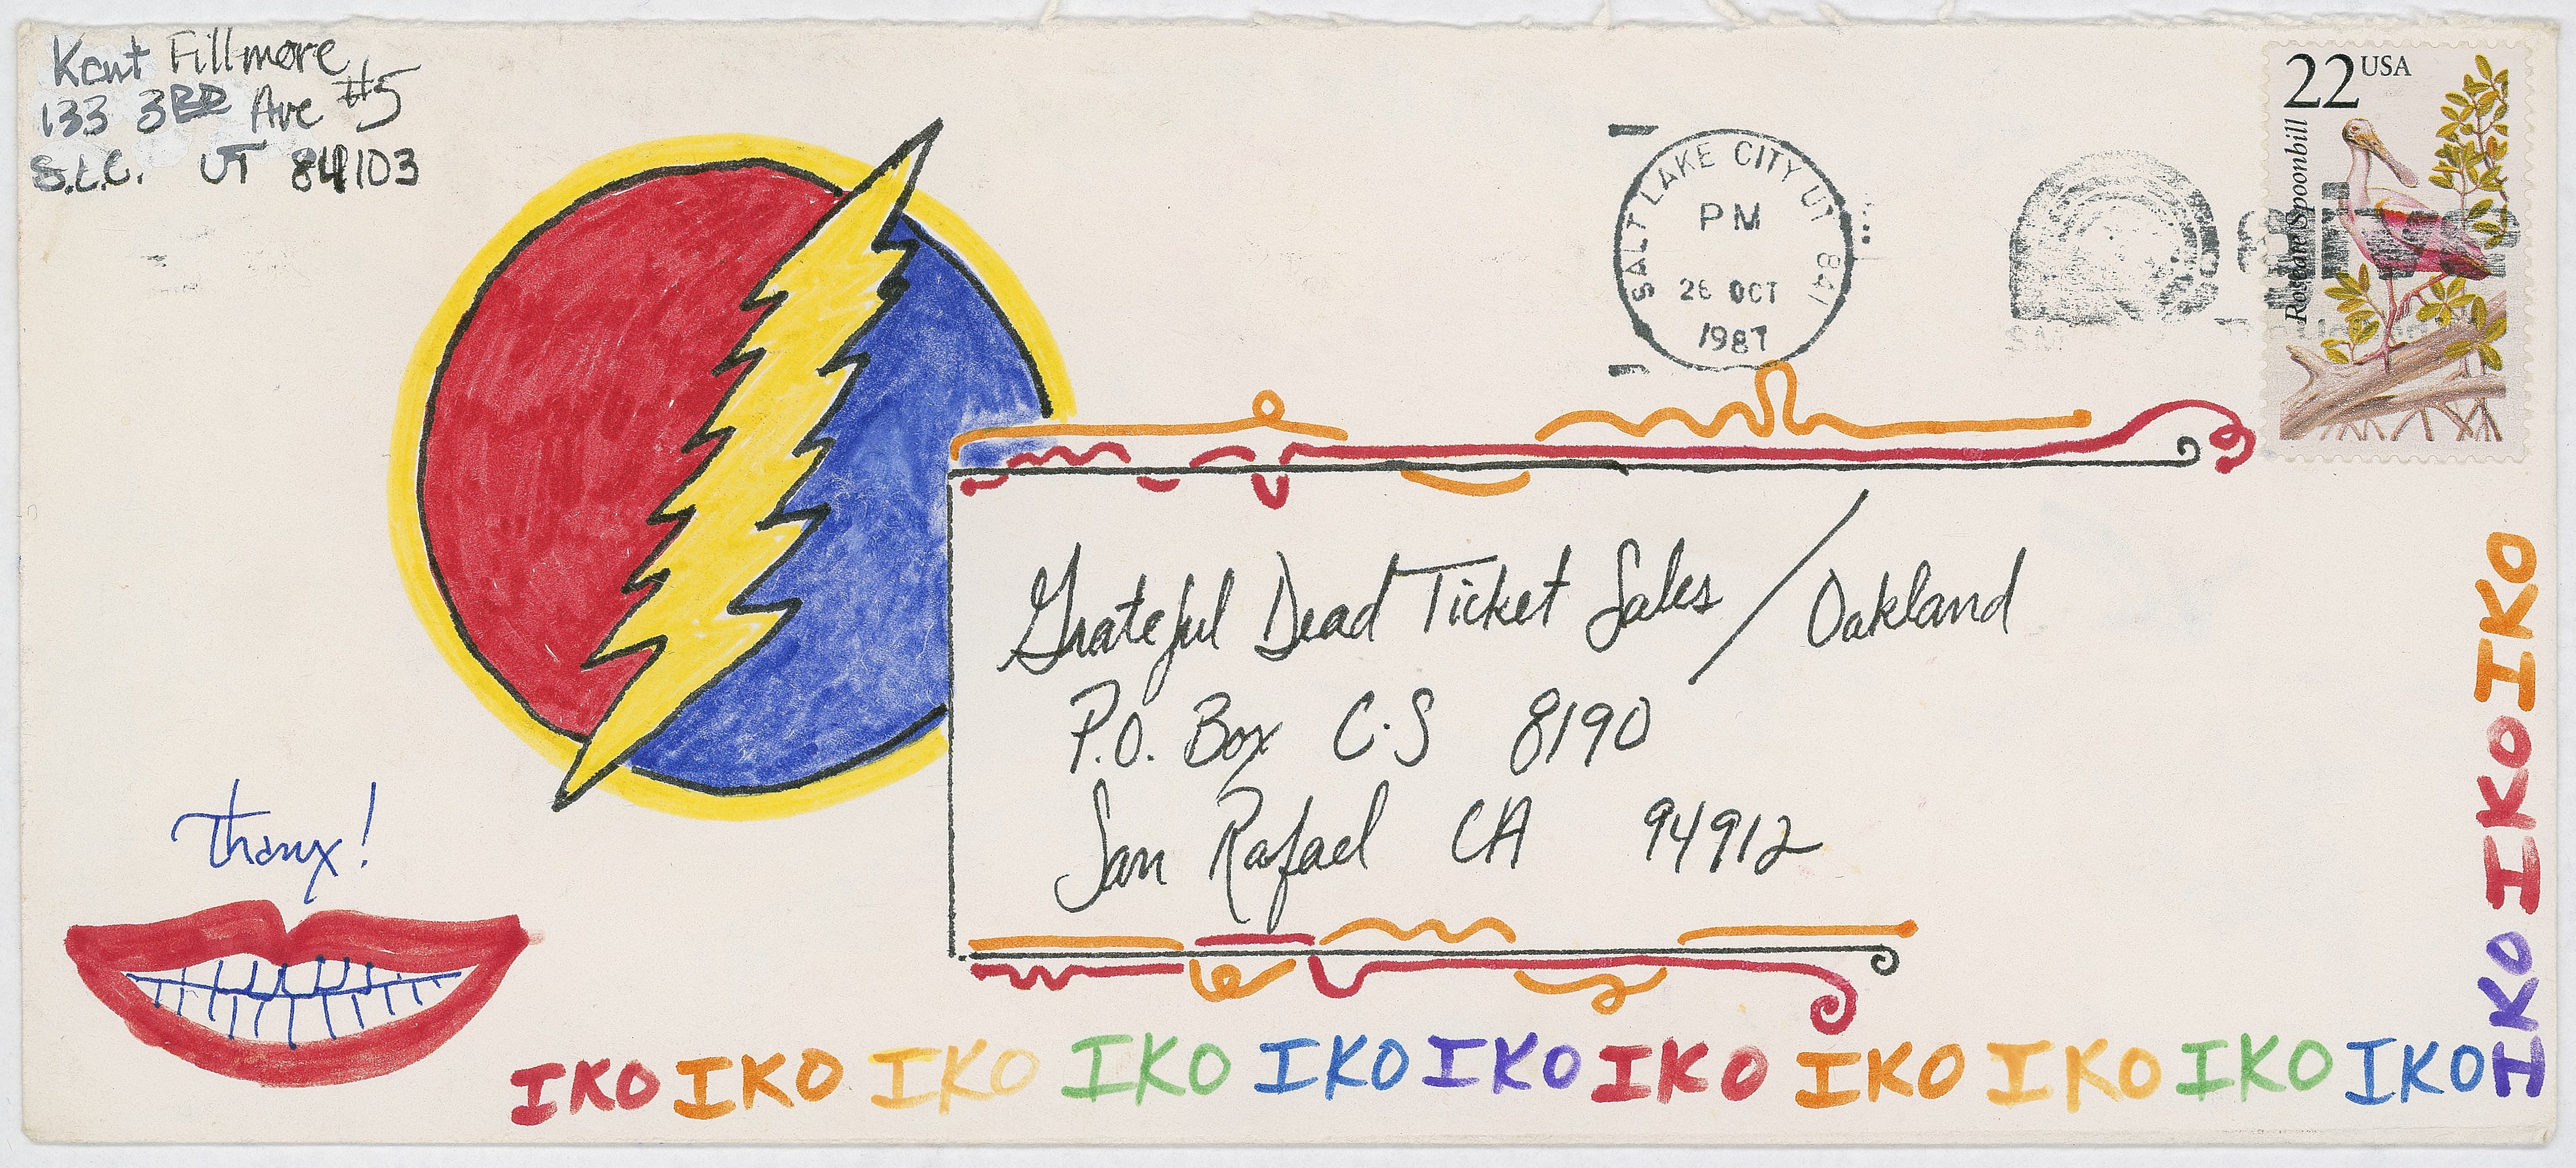 Kent Fillmore
133 3RD Ave #5
S.L.C. UT 84103
22 USA
Roseate Spoonbill
SALT LAKE CITY UT 841
PM
26 OCT
1987
Grateful Dead Ticket Sales / Oakland
P.O. Box C.S 8190
San Rafael CA 94912
Thanx!
IKO IKO IKO IKO IKO IKO IKO IKO IKO IKO IKO
IKO IKO IKO